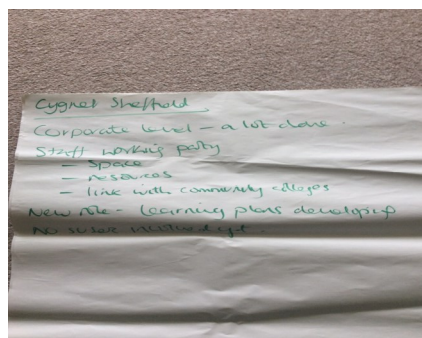 Cygnet Sheffield
Corporate level - a lot done.
Staff working party
- Space
- resources
- link with community colleges
New role - Learning plans developing
No